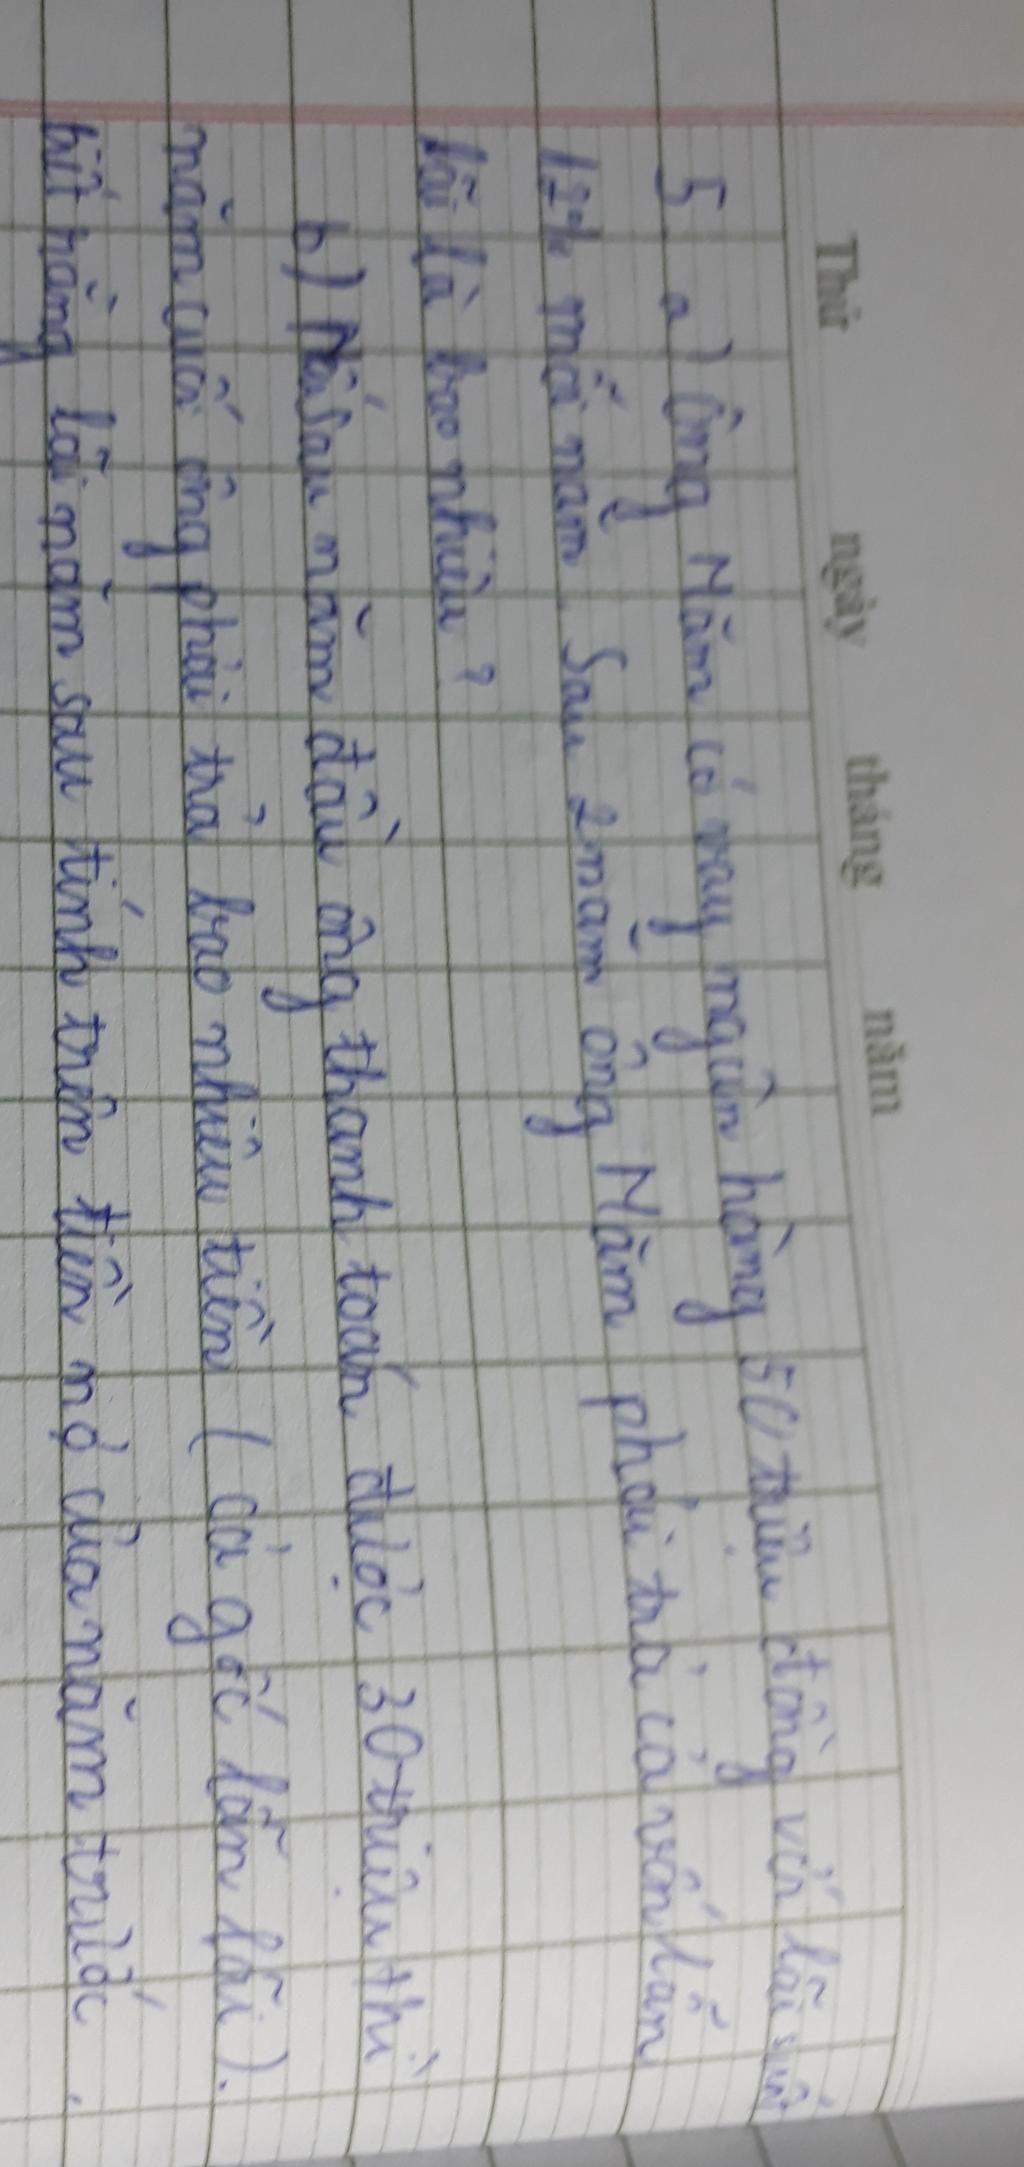 Thứ ngày tháng năm
5 a) Ông Năm có vay ngân hàng 50 triệu đồng với lãi suất
12% mỗi năm. Sau 2 năm ông Năm phải trả cả vốn lẫn
lãi là bao nhiêu?
b) Nếu sau năm đầu ông thanh toán được 30 triệu thì
năm cuối ông phải trả bao nhiêu tiền (cả gốc lẫn lãi).
biết rằng lãi năm sau tính trên tiền nợ của năm trước.